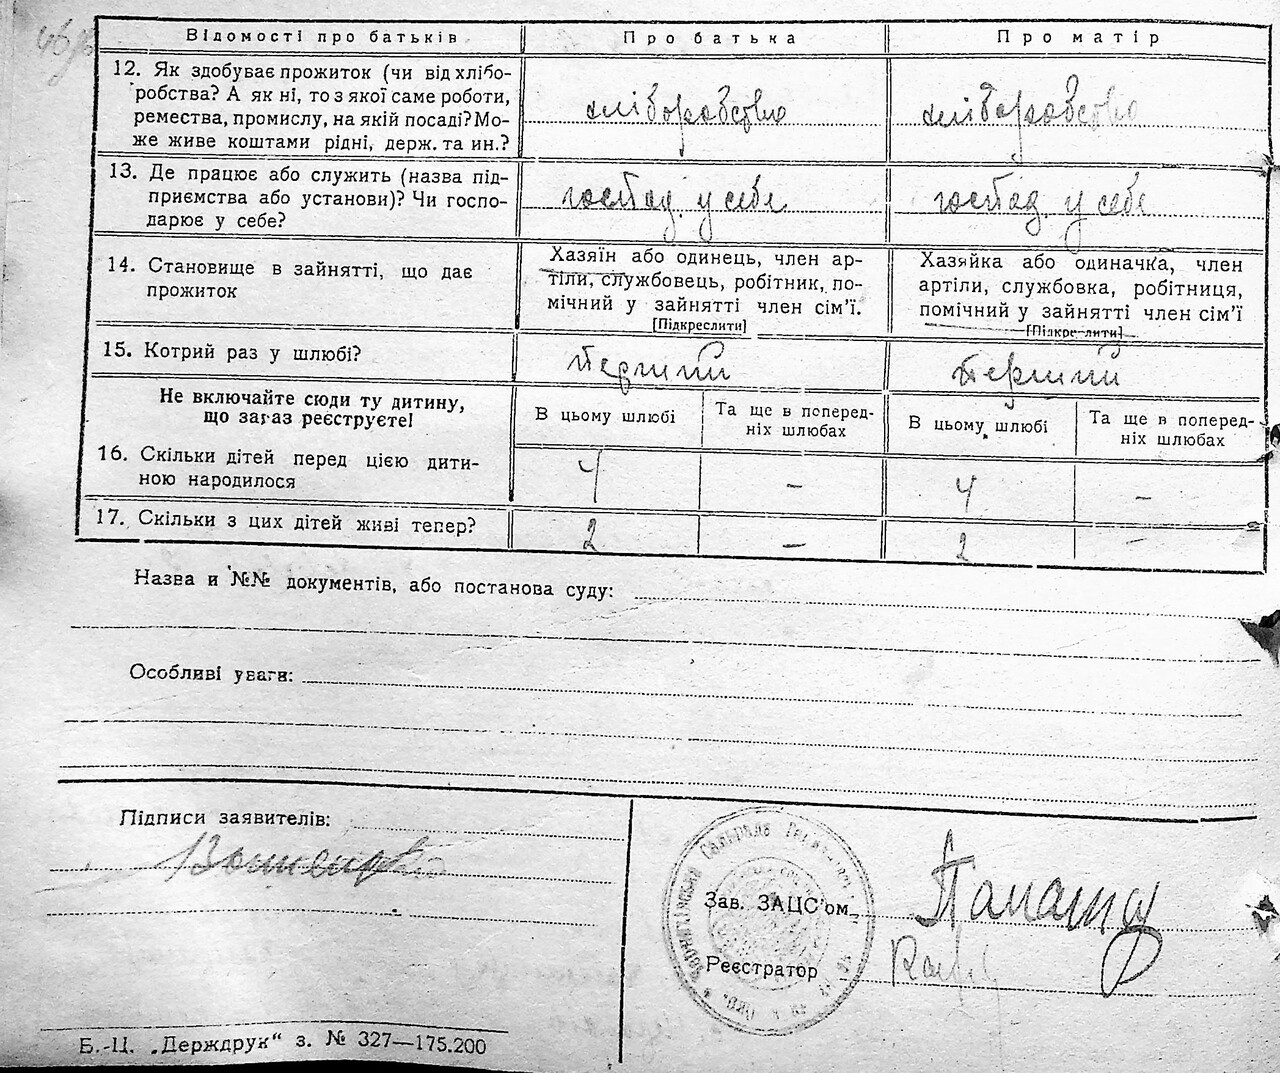 Відомості про батьків Про батька Про матір
12. Як здобуває прожиток (чи від хлібо-
робства? А як ні, то з якої саме роботи,
ремества, промислу, на якій посаді? Мо-
же живе коштами рідні, держ. та ин.?
хліборобство хліборобство
13. Де працює або служить (назва під-
приємства або установи)? Чи госпо-
дарює у себе?
господ. у себе господ. у себе
14. Становище в зайнятті, що дає
прожиток
Хазяїн або одинець, член ар-
тіли, службовець, робітник, по-
мічний у зайнятті член сім'ї.
[Підкреслити]
Хазяйка або одиначка, член
артіли, службовка, робітниця,
помічний у зайнятті член сім'ї
[Підкреслити]
15. Котрий раз у шлюбі? перший перший
Не включайте сюди ту дитину,
що зараз реєструєте!
В цьому шлюбі
Та ще в поперед-
ніх шлюбах
В цьому шлюбі
Та ще в поперед-
ніх шлюбах
16. Скільки дітей перед цією дити-
ною народилося
4 – 4 –
17. Скільки з цих дітей живі тепер? 2 – 2 –
Назва и №№ документів, або постанова суду:
Особливі уваги:
Підписи заявителів:
Зав. ЗАЦС'ом
Реєстратор
Б.-Ц. „Держдрук“ з. № 327—175.200